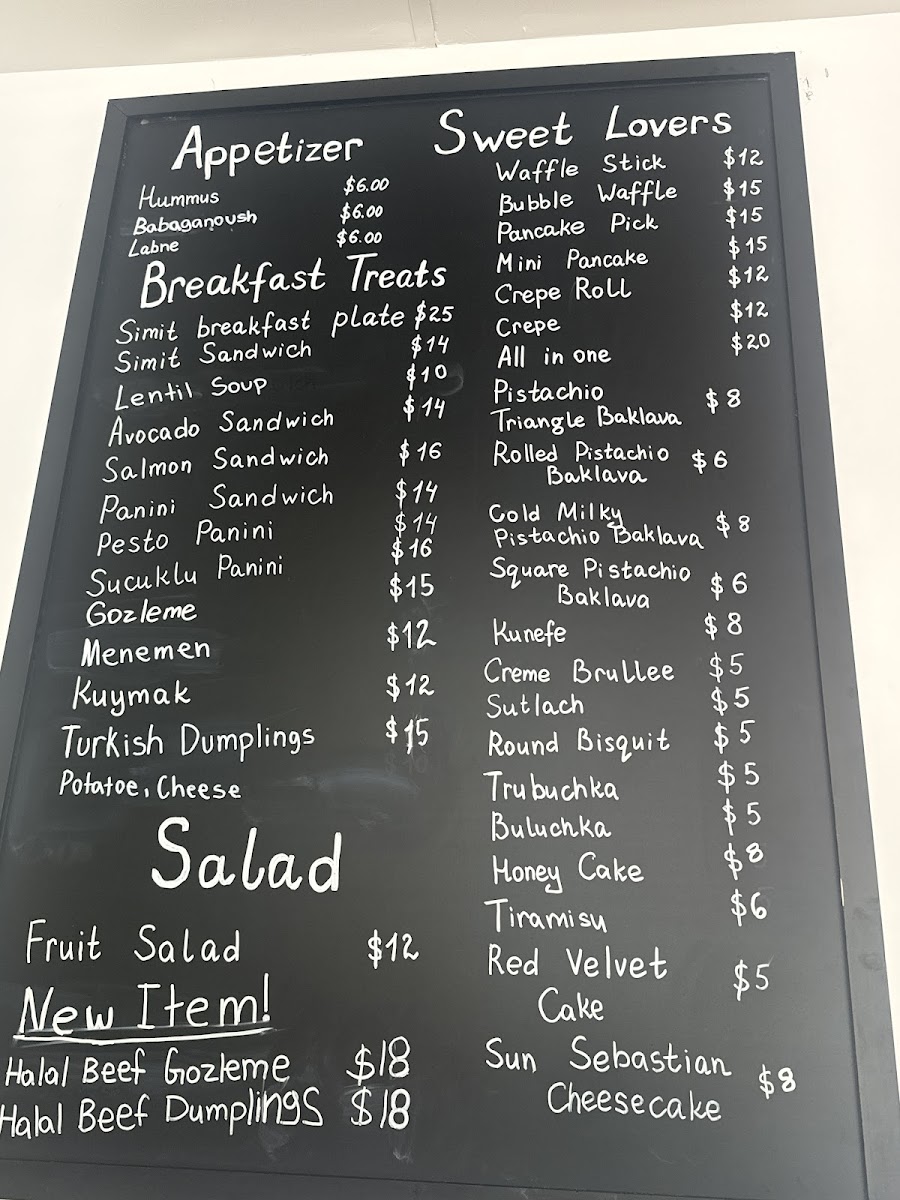 Appetizer
Hummus $6.00
Babaganoush $6.00
Labne $6.00
Breakfast Treats
Simit breakfast plate $25
Simit Sandwich $14
Lentil Soup $10
Avocado Sandwich $14
Salmon Sandwich $16
Panini Sandwich $14
Pesto Panini $14
Sucuklu Panini $16
Gozleme $15
Menemen $12
Kuymak $12
Turkish Dumplings $15
Potatoe, Cheese
Salad
Fruit Salad $12
New Item!
Halal Beef Gozleme $18
Halal Beef Dumplings $18
Sweet Lovers
Waffle Stick $12
Bubble Waffle $15
Pancake Pick $15
Mini Pancake $15
Crepe Roll $12
Crepe $12
All in one $20
Pistachio
Triangle Baklava $8
Rolled Pistachio
Baklava $6
Cold Milky
Pistachio Baklava $8
Square Pistachio
Baklava $6
Kunefe $8
Creme Brullee $5
Sutlach $5
Round Bisquit $5
Trubuchka $5
Buluchka $5
Honey Cake $8
Tiramisu $6
Red Velvet
Cake $5
Sun Sebastian
Cheesecake $8